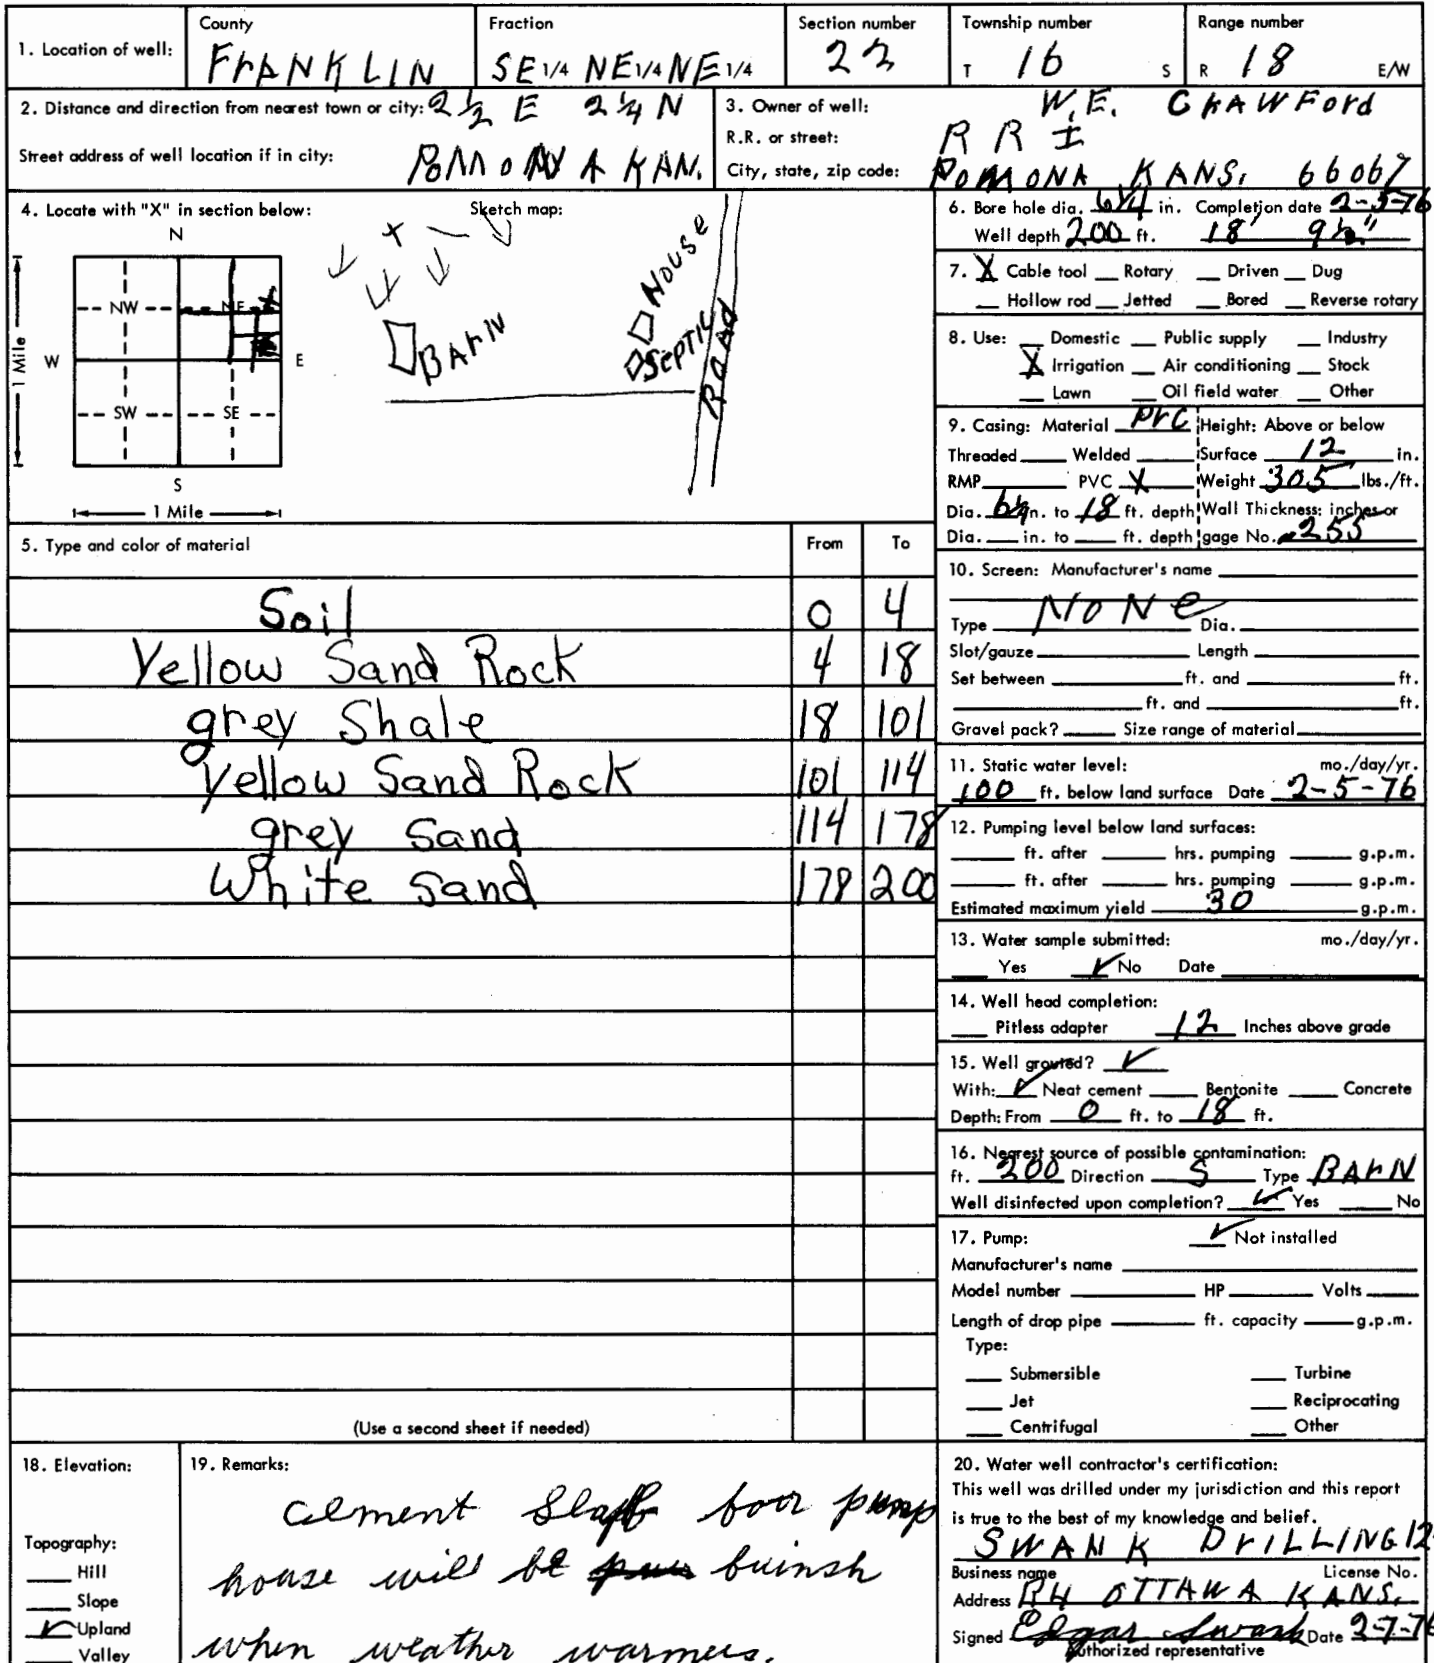 1. Location of well:
County
FrANKLIN
Fraction
SE 1/4 NE 1/4 NE 1/4
Section number
22
Township number
T 16 S
Range number
R 18 E/W
2. Distance and direction from nearest town or city: 2 1/2 E 2 1/4 N
Street address of well location if in city: POMONA KAN.
3. Owner of well: W.E. CrAWFord
R.R. or street: R R I
City, state, zip code: POMONA KANS. 66067
4. Locate with "X" in section below:
Sketch map:
N
NW NE
W E
SW SE
S
1 Mile
1 Mile
X
BArN
House
SEPTIC
ROAD
5. Type and color of material From To
Soil 0 4
Yellow Sand Rock 4 18
grey Shale 18 101
Yellow Sand Rock 101 114
grey Sand 114 178
White Sand 178 200
(Use a second sheet if needed)
6. Bore hole dia. 6 1/4 in. Completion date 2-5-76
Well depth 200 ft. 18' 9 1/2"
7. X Cable tool Rotary Driven Dug
Hollow rod Jetted Bored Reverse rotary
8. Use: Domestic Public supply Industry
X Irrigation Air conditioning Stock
Lawn Oil field water Other
9. Casing: Material PVC Height: Above or below
Threaded Welded Surface 12 in.
RMP PVC X Weight 305 lbs./ft.
Dia. 6 1/4 in. to 18 ft. depth Wall Thickness: inches or
Dia. in. to ft. depth gage No. .255
10. Screen: Manufacturer's name
Type NoNe Dia.
Slot/gauze Length
Set between ft. and ft.
ft. and ft.
Gravel pack? Size range of material
11. Static water level: mo./day/yr.
100 ft. below land surface Date 2-5-76
12. Pumping level below land surfaces:
ft. after hrs. pumping g.p.m.
ft. after hrs. pumping g.p.m.
Estimated maximum yield 30 g.p.m.
13. Water sample submitted: mo./day/yr.
Yes ✓ No Date
14. Well head completion:
Pitless adapter 12 Inches above grade
15. Well grouted? ✓
With: ✓ Neat cement Bentonite Concrete
Depth: From 0 ft. to 18 ft.
16. Nearest source of possible contamination:
ft. 200 Direction S Type BArN
Well disinfected upon completion? ✓ Yes No
17. Pump: ✓ Not installed
Manufacturer's name
Model number HP Volts
Length of drop pipe ft. capacity g.p.m.
Type:
Submersible Turbine
Jet Reciprocating
Centrifugal Other
18. Elevation:
Topography:
Hill
Slope
✓ Upland
Valley
19. Remarks:
cement Slab foor pump
house will be finish
when weather warmes.
20. Water well contractor's certification:
This well was drilled under my jurisdiction and this report
is true to the best of my knowledge and belief.
SWANK DrILLING 12
Business name License No.
Address R4 OTTAWA KANS.
Signed Edgar Swank Date 2-7-76
Authorized representative